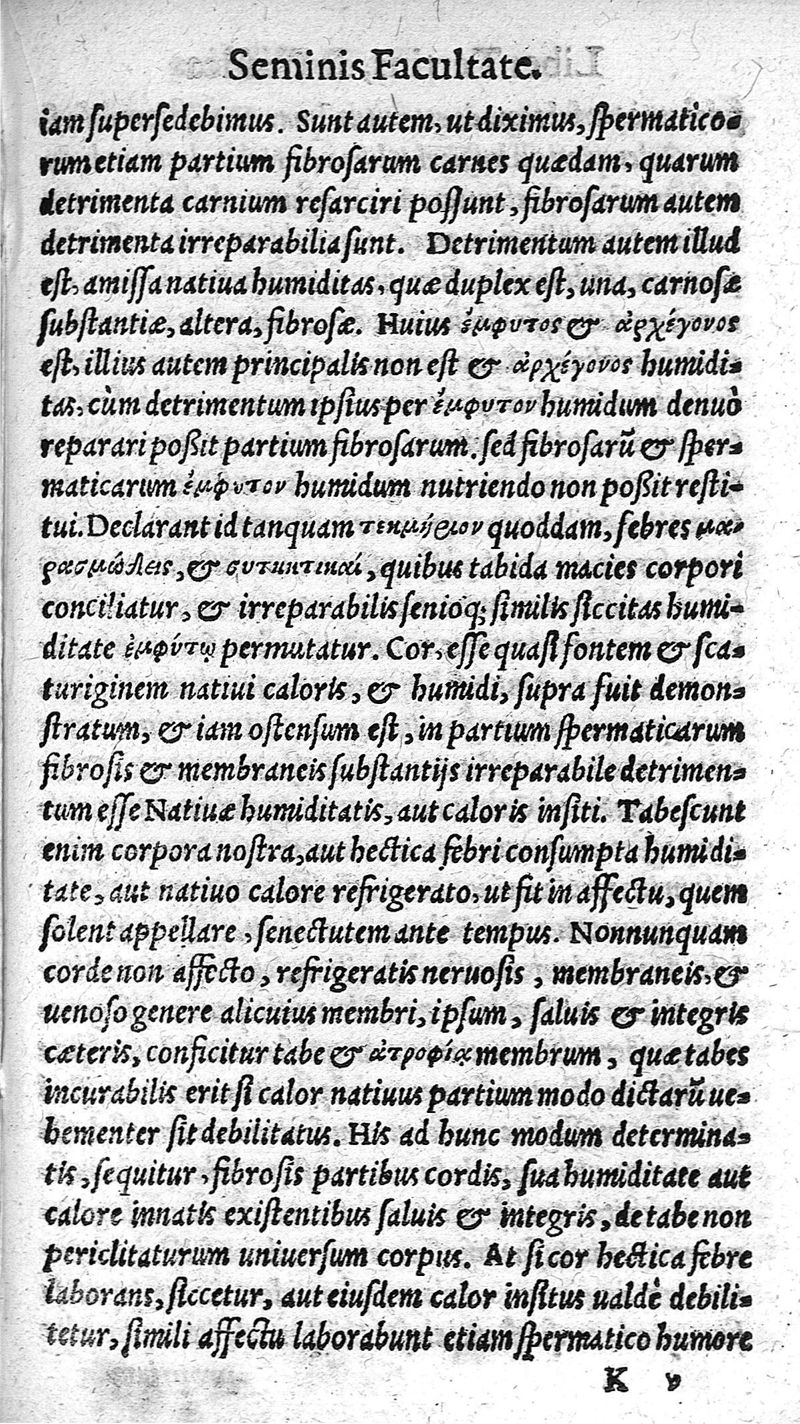 Seminis Facultate.
iam ſuperſedebimus. Sunt autem, ut diximus, ſpermatico-
rum etiam partium fibroſarum carnes quædam, quarum
detrimenta carnium reſarciri poſſunt, fibroſarum autem
detrimenta irreparabilia ſunt. Detrimentum autem illud
eſt, amiſſa natiua humiditas, quæ duplex eſt, una, carnoſæ
ſubſtantiæ, altera, fibroſæ. Huius ἐμφυτος & ἀρχέγονος
eſt, illius autem principalis non eſt & ἀρχέγονος humidi-
tas, cùm detrimentum ipſius per ἐμφυτον humidum denuò
reparari poßit partium fibroſarum. ſed fibroſarũ & ſper-
maticarum ἐμφυτον humidum nutriendo non poßit reſti-
tui. Declarant id tanquam τεκμήριον quoddam, febres μα-
ρασμώδεις, & συτηκτικαί, quibus tabida macies corpori
conciliatur, & irreparabilis ſenioq; ſimilis ſiccitas humi-
ditate ἐμφύτῳ permutatur. Cor, eſſe quaſi fontem & ſca-
turiginem natiui caloris, & humidi, ſupra fuit demon-
ſtratum, & iam oſtenſum eſt, in partium ſpermaticarum
fibroſis & membraneis ſubſtantijs irreparabile detrimen-
tum eſſe Natiuæ humiditatis, aut caloris inſiti. Tabeſcunt
enim corpora noſtra, aut hectica febri conſumpta humidi-
tate, aut natiuo calore refrigerato, ut fit in affectu, quem
ſolent appellare, ſenectutem ante tempus. Nonnunquam
corde non affecto, refrigeratis neruoſis, membraneis, &
uenoſo genere alicuius membri, ipſum, ſaluis & integris
cæteris, conficitur tabe & ἀτροφίᾳ membrum, quæ tabes
incurabilis erit ſi calor natiuus partium modo dictarũ ue-
hementer ſit debilitatus. His ad hunc modum determina-
tis, ſequitur, fibroſis partibus cordis, ſua humiditate aut
calore innatis exiſtentibus ſaluis & integris, de tabe non
periclitaturum uniuerſum corpus. At ſi cor hectica febre
laborans, ſiccetur, aut eiuſdem calor inſitus ualdè debili-
tetur, ſimili affectu laborabunt etiam ſpermatico humore
K v